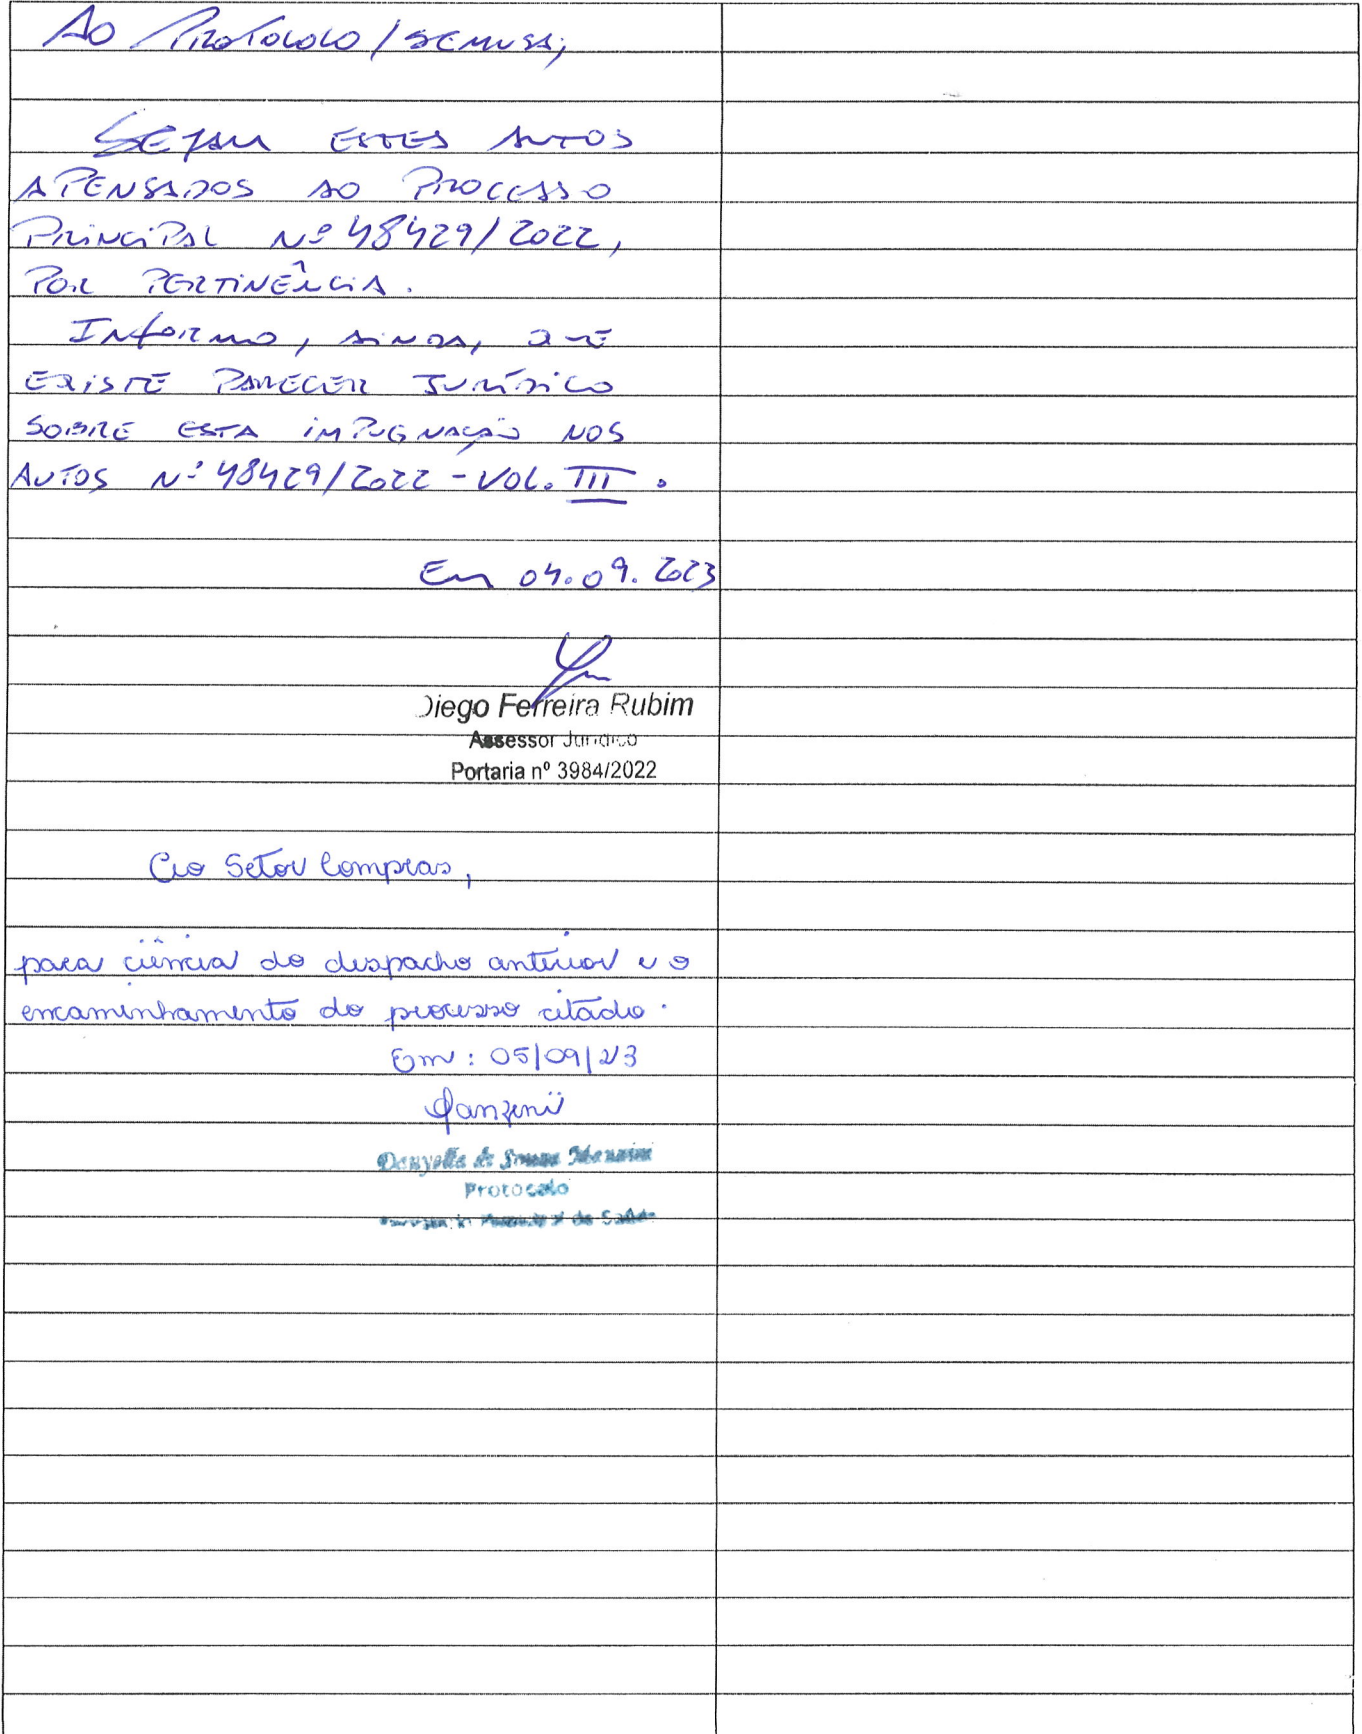 AO PROTOCOLO / SEMUSA;
SEJAM ESTES AUTOS
APENSADOS AO PROCESSO
PRINCIPAL Nº 48429/2022,
POR PERTINÊNCIA.
INFORMO, AINDA, QUE
EXISTE PARECER JURÍDICO
SOBRE ESTA IMPUGNAÇÃO NOS
AUTOS Nº 48429/2022 - VOL. III.
Em 04.09.2023
Diego Ferreira Rubim
Assessor Jurídico
Portaria nº 3984/2022
Ao Setor Compras,
para ciência do despacho anterior e o
encaminhamento do processo citado.
Em: 05/09/23
Danyella de Souza
Protocolo
de Saúde